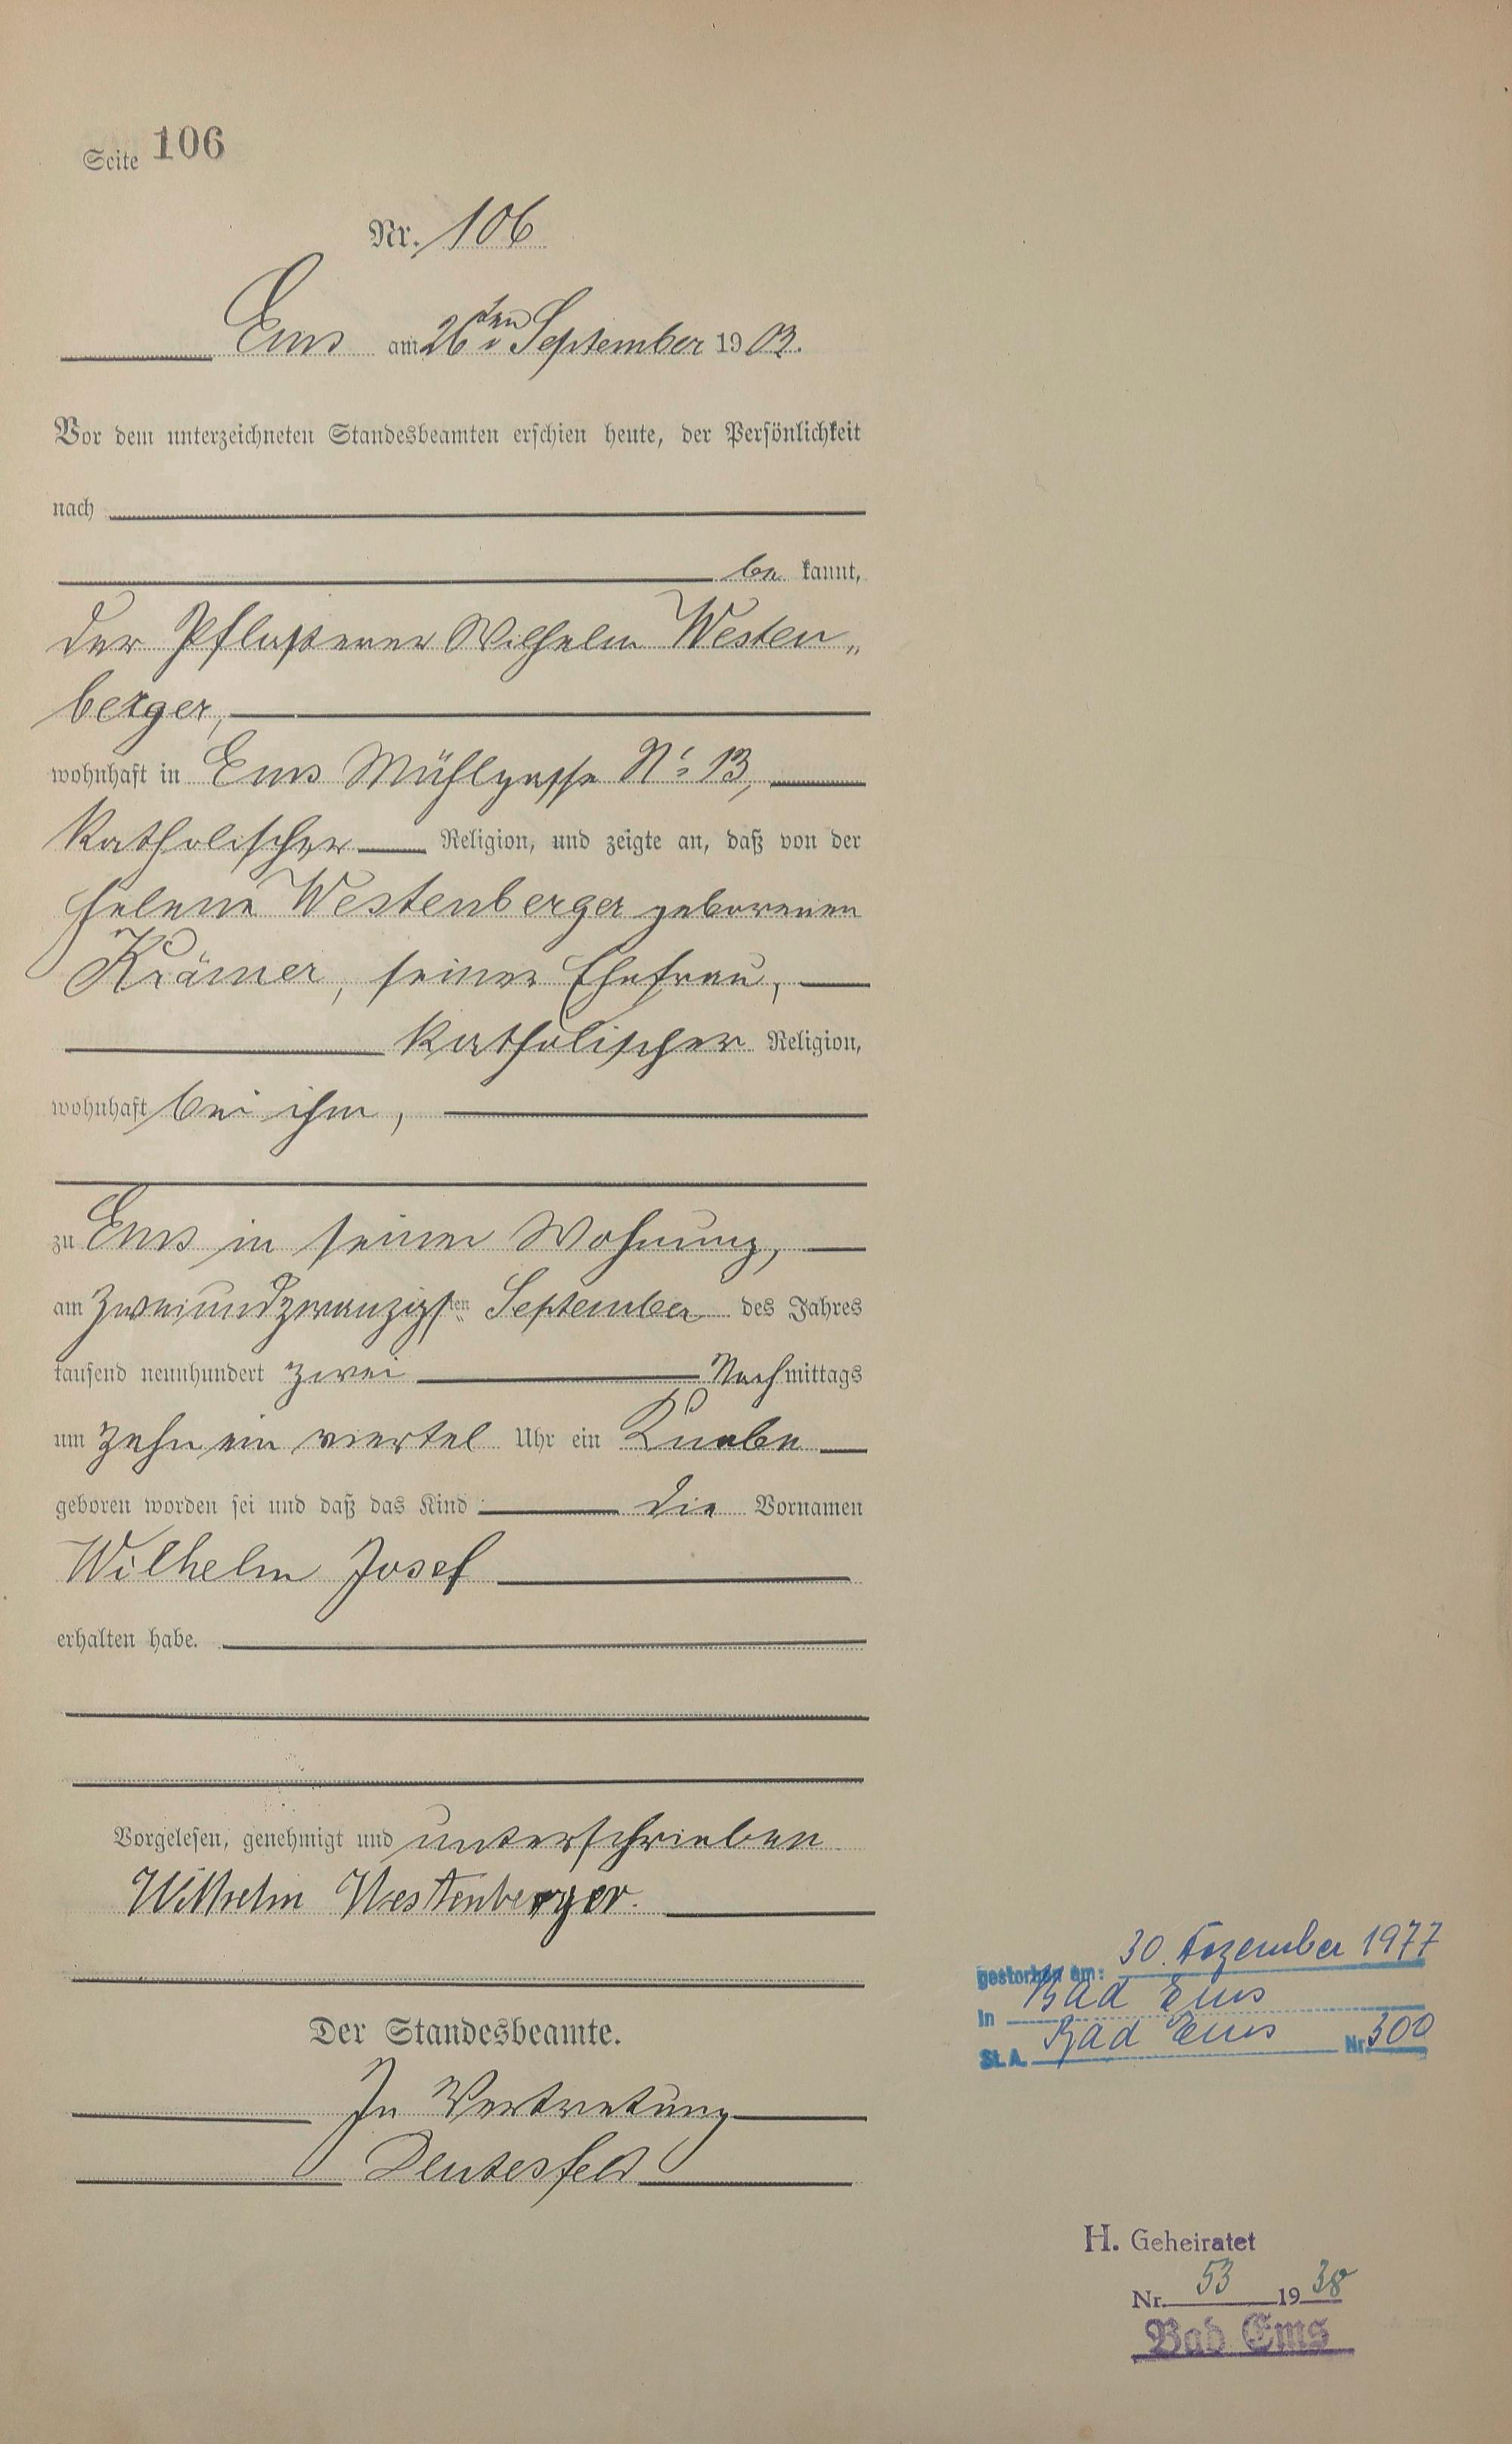 Seite 106
Nr. 106
Ems am 26ten September 1902.
Vor dem unterzeichneten Standesbeamten erschien heute, der Persönlichkeit
nach
be kannt,
der Pflasterer Wilhelm Westen„
berger,
wohnhaft in Ems Mühlgasse No 13,
katholischer Religion, und zeigte an, daß von der
Helene Westenberger geborenen
Krämer, seiner Ehefrau,
katholischer Religion,
wohnhaft bei ihm,
zu Ems in seiner Wohnung,
am zweiundzwanzigsten September des Jahres
tausend neunhundert zwei Nachmittags
um zehn ein viertel Uhr ein Knabe
geboren worden sei und daß das Kind die Vornamen
Wilhelm Josef
erhalten habe.
Vorgelesen, genehmigt und unterschrieben
Wilhelm Westenberger.
Der Standesbeamte.
In Vertretung
Deutesfeld
gestorben am: 30. Dezember 1977
in Bad Ems
St. A. Bad Ems Nr. 300
H. Geheiratet
Nr. 53 19 38
Bad Ems